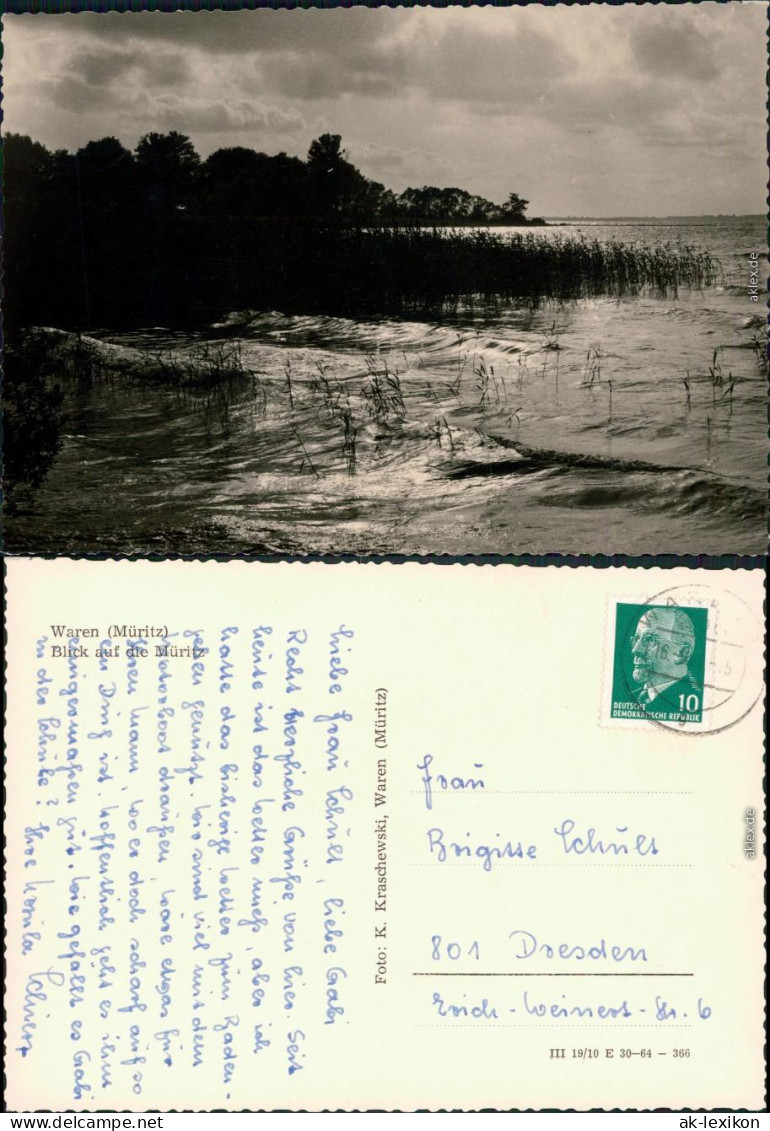 aklex.de
Waren (Müritz)
Blick auf die Müritz
Liebe Frau Schult, liebe Gabi
Recht herzliche Grüße von hier. Seit
heute ist das Wetter mies, aber ich
hatte das bisherige Wetter zum Baden-
gehen genützt. Wir sind viel mit dem
Motorboot draußen, wäre etwas für
Ihren Mann, wo er doch scharf auf so
ein Ding ist. Hoffentlich geht es ihm
einigermaßen gut. Wie gefällt es Gabi
in der Schule? Ihre
Foto: K. Kraschewski, Waren (Müritz)
DEUTSCHE
DEMOKRATISCHE REPUBLIK
10
Frau
Brigitte Schult
801 Dresden
Erich-Weinert-Str. 6
III 19/10 E 30—64 — 366
aklex.de
www.delcampe.net
ak-lexikon